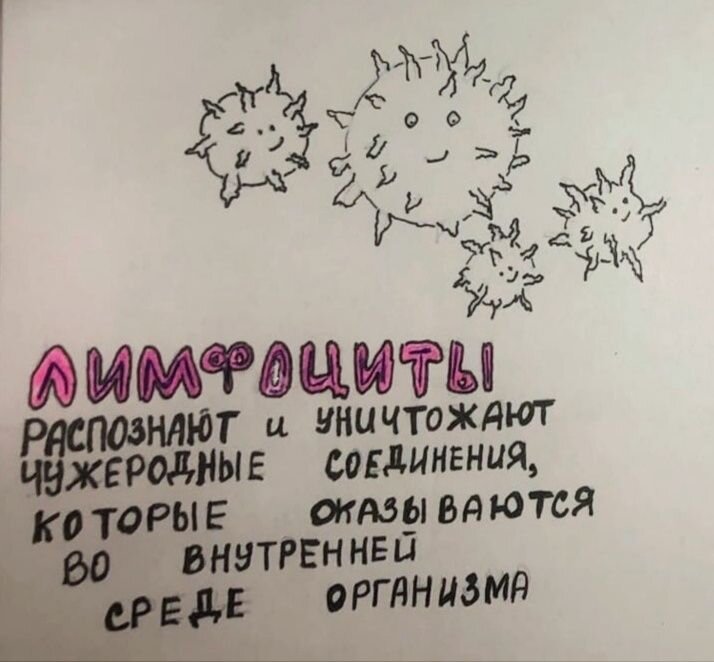 ЛИМФОЦИТЫ
РАСПОЗНАЮТ и УНИЧТОЖАЮТ
ЧУЖЕРОДНЫЕ СОЕДИНЕНИЯ,
КОТОРЫЕ ОКАЗЫВАЮТСЯ
ВО ВНУТРЕННЕЙ
СРЕДЕ ОРГАНИЗМА